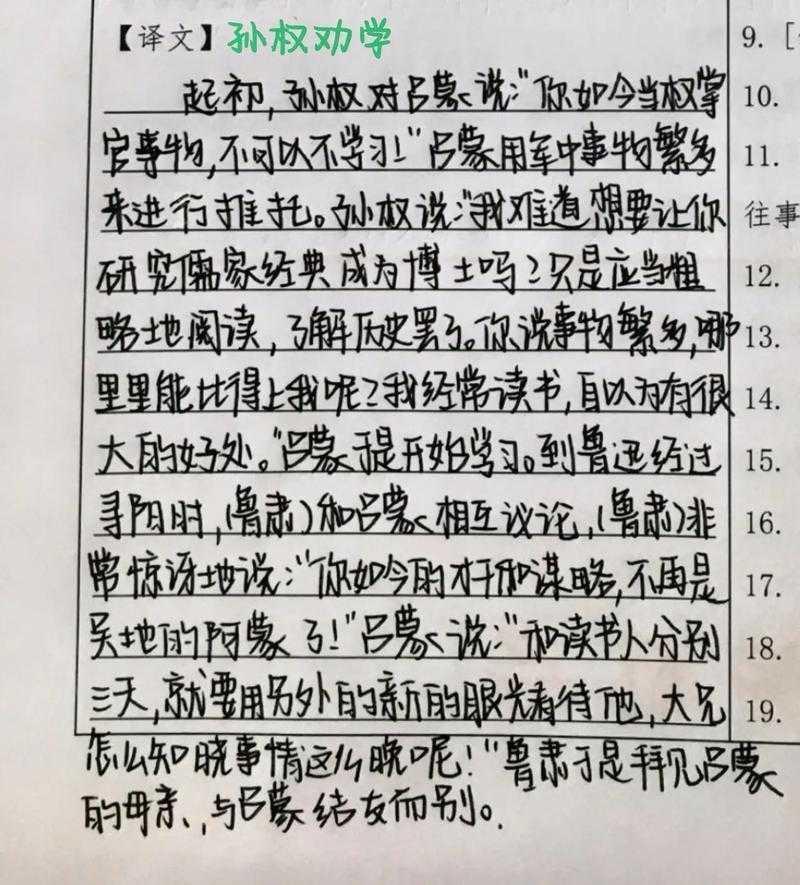 【译文】孙权劝学
起初，孙权对吕蒙说："你如今当权掌
官事物，不可以不学习！"吕蒙用军中事物繁多
来进行推托。孙权说："我难道想要让你
研究儒家经典成为博士吗？只是应当粗
略地阅读，了解历史罢了。你说事物繁多，哪
里里能比得上我呢？我经常读书，自以为有很
大的好处。"吕蒙于是开始学习。到鲁迅经过
寻阳时，(鲁肃)和吕蒙相互议论，(鲁肃)非
常惊讶地说："你如今的才干和谋略，不再是
吴地的阿蒙了！"吕蒙说："和读书人分别
三天，就要用另外的新的眼光看待他，大兄
怎么知晓事情这么晚呢！"鲁肃于是拜见吕蒙
的母亲，与吕蒙结友而别。
9. [
10.
11.
往事
12.
13.
14.
15.
16.
17.
18.
19.